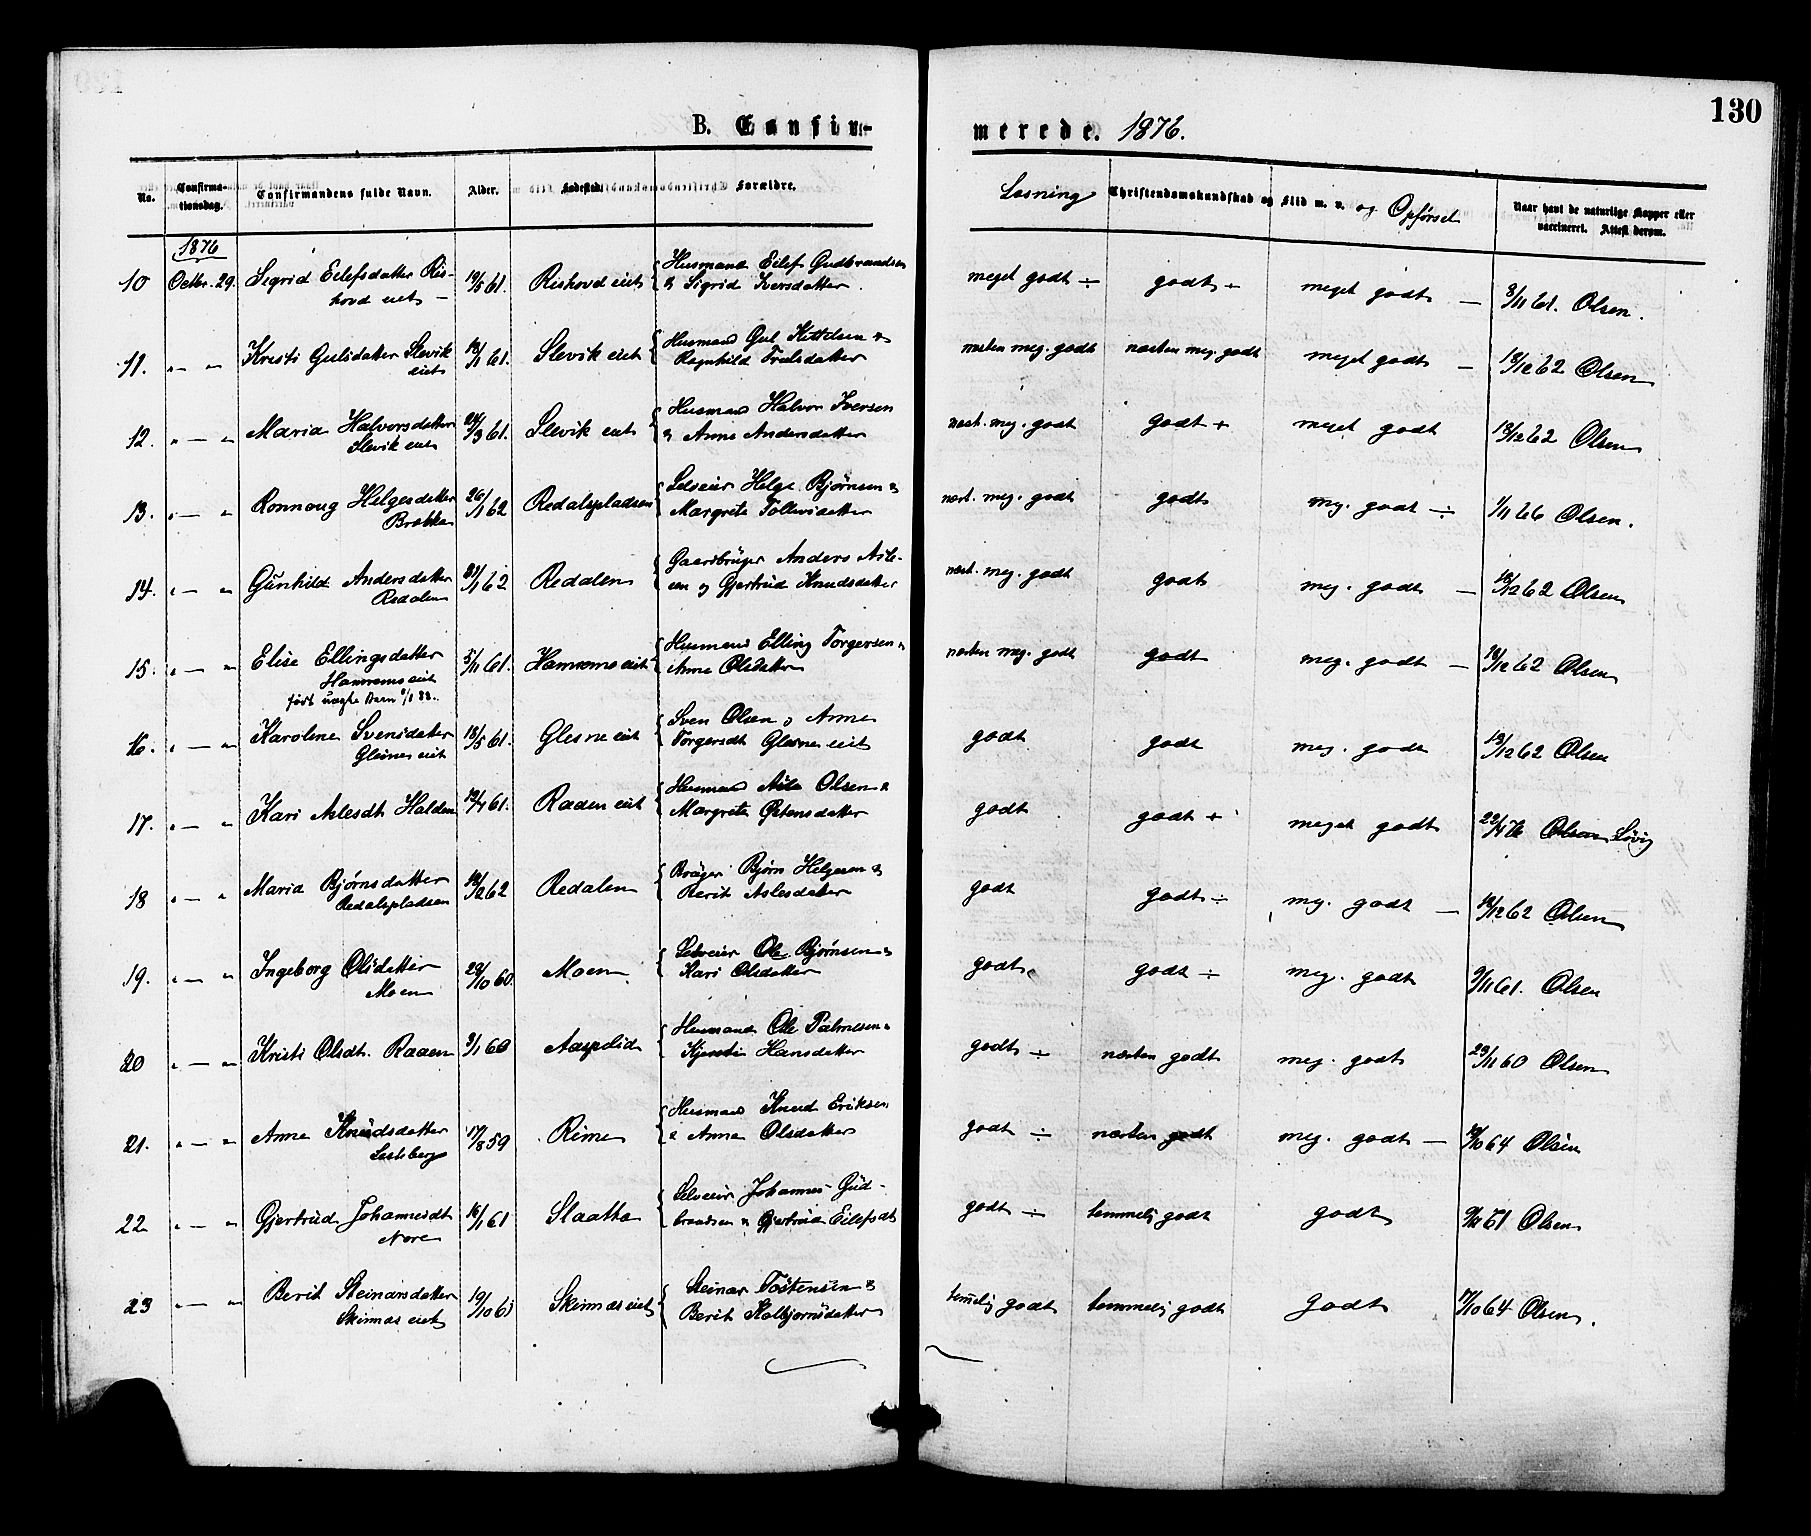 130
B. Confir-
merede. 1876.
No.
Confirma-
tionsdag.
Confirmandens fulde Navn.
Alder.
Fødested.
Forældre.
Læsning
Christendomskundskab og Flid m. v. og Opførsel
Naar havt de naturlige Kopper eller
vaccineret. Attest derom.
1876
10 Octbr. 29. Sigrid Eilefsdatter Ris-
hovd eiet — 19/5 61. Rishovd eiet Husmand Eilef Gudbrandsen
& Sigrid Iversdatter. meget godt ÷ godt ÷ meget godt — 3/11 61. Olsen.
11. " — " Kristi Gulsdatter Slevik
eiet 13/1 61. Slevik eiet Husmand Gul Kittilsen &
Ragnhild Truelsdatter næsten meg. godt næsten meg. godt meget godt — 18/12 62 Olsen
12. " — " Maria Halvorsdatter
Slevik eiet 24/3 61. Slevik eiet Husmand Halvor Iversen
& Anne Andersdatter næst. meg. godt godt + meget godt 18/12 62 Olsen
13. " — " Ronnoug Helgesdatter
Brække 26/1 62 Redalspladsen Selveier Helge Bjørnsen &
Margrete Tollevsdatter næst. meg. godt godt meg. godt ÷ 1/11 66 Olsen.
14. " — " Gunhild Andersdatter
Redalen 31/1 62 Redalen Gaardbruger Anders Asle-
sen og Gjertrud Knudsdatter næst. meg. godt godt meg. godt — 18/12 62 Olsen
15. " — " Elise Ellingsdatter
Hamremo eiet
født uægte Barn 88. 5/11 61. Hamremo eiet Husmand Elling Torgersen &
Anne Olsdatter næsten meg. godt godt meg. godt — 18/12 62 Olsen
16. " — " Karoline Svensdatter
Glesne eiet 18/5 61. Glesne eiet Sven Olsen & Anne
Torgersdt Glesne eiet godt godt meg. godt 19/12 62 Olsen
17. " — " Kari Aslesdt Halden 19/4 61. Raaen eiet Husmand Asle Olsen &
Margrete Østensdatter godt godt + meget godt 22/4 76 Olsen Løvig
18 " — " Maria Bjørnsdatter
Redalspladsen 18/2 62 Redalen Bruger Bjørn Helgesen &
Berit Aslesdatter godt godt ÷ meg. godt — 18/12 62 Olsen
19. " — " Ingeborg Olsdatter
Moen 29/10 60. Moen Selveier Ole Bjørnsen &
Kari Olsdatter godt godt ÷ meg. godt 9/11 61. Olsen
20 " — " Kristi Olsdt. Raaen 9/1 60 Aasplid Husmand Ole Palmesen &
Kjersti Hansdatter godt ÷ næsten godt meg. godt 23/11 60 Olsen
21. " — " Anne Knudsdatter
Lesteberg 17/8 59 Rime Husmand Knud Eriksen
& Anne Olsdatter godt ÷ næsten godt meg. godt — 10/10 64 Olsen
22 " — " Gjertrud Johannesdt
Nore 16/1 61 Slaatta Selveier Johannes Gud-
brandsen & Gjertrud Eilefsdt godt ÷ temmelig godt godt 9/11 61 Olsen
23 " — " Berit Steinarsdatter
Skinnæs eiet 19/10 61 Skinnæs eiet Steinar Tostensen &
Berit Kolbjørnsdatter temelig godt temmelig godt godt 17/10 64 Olsen.